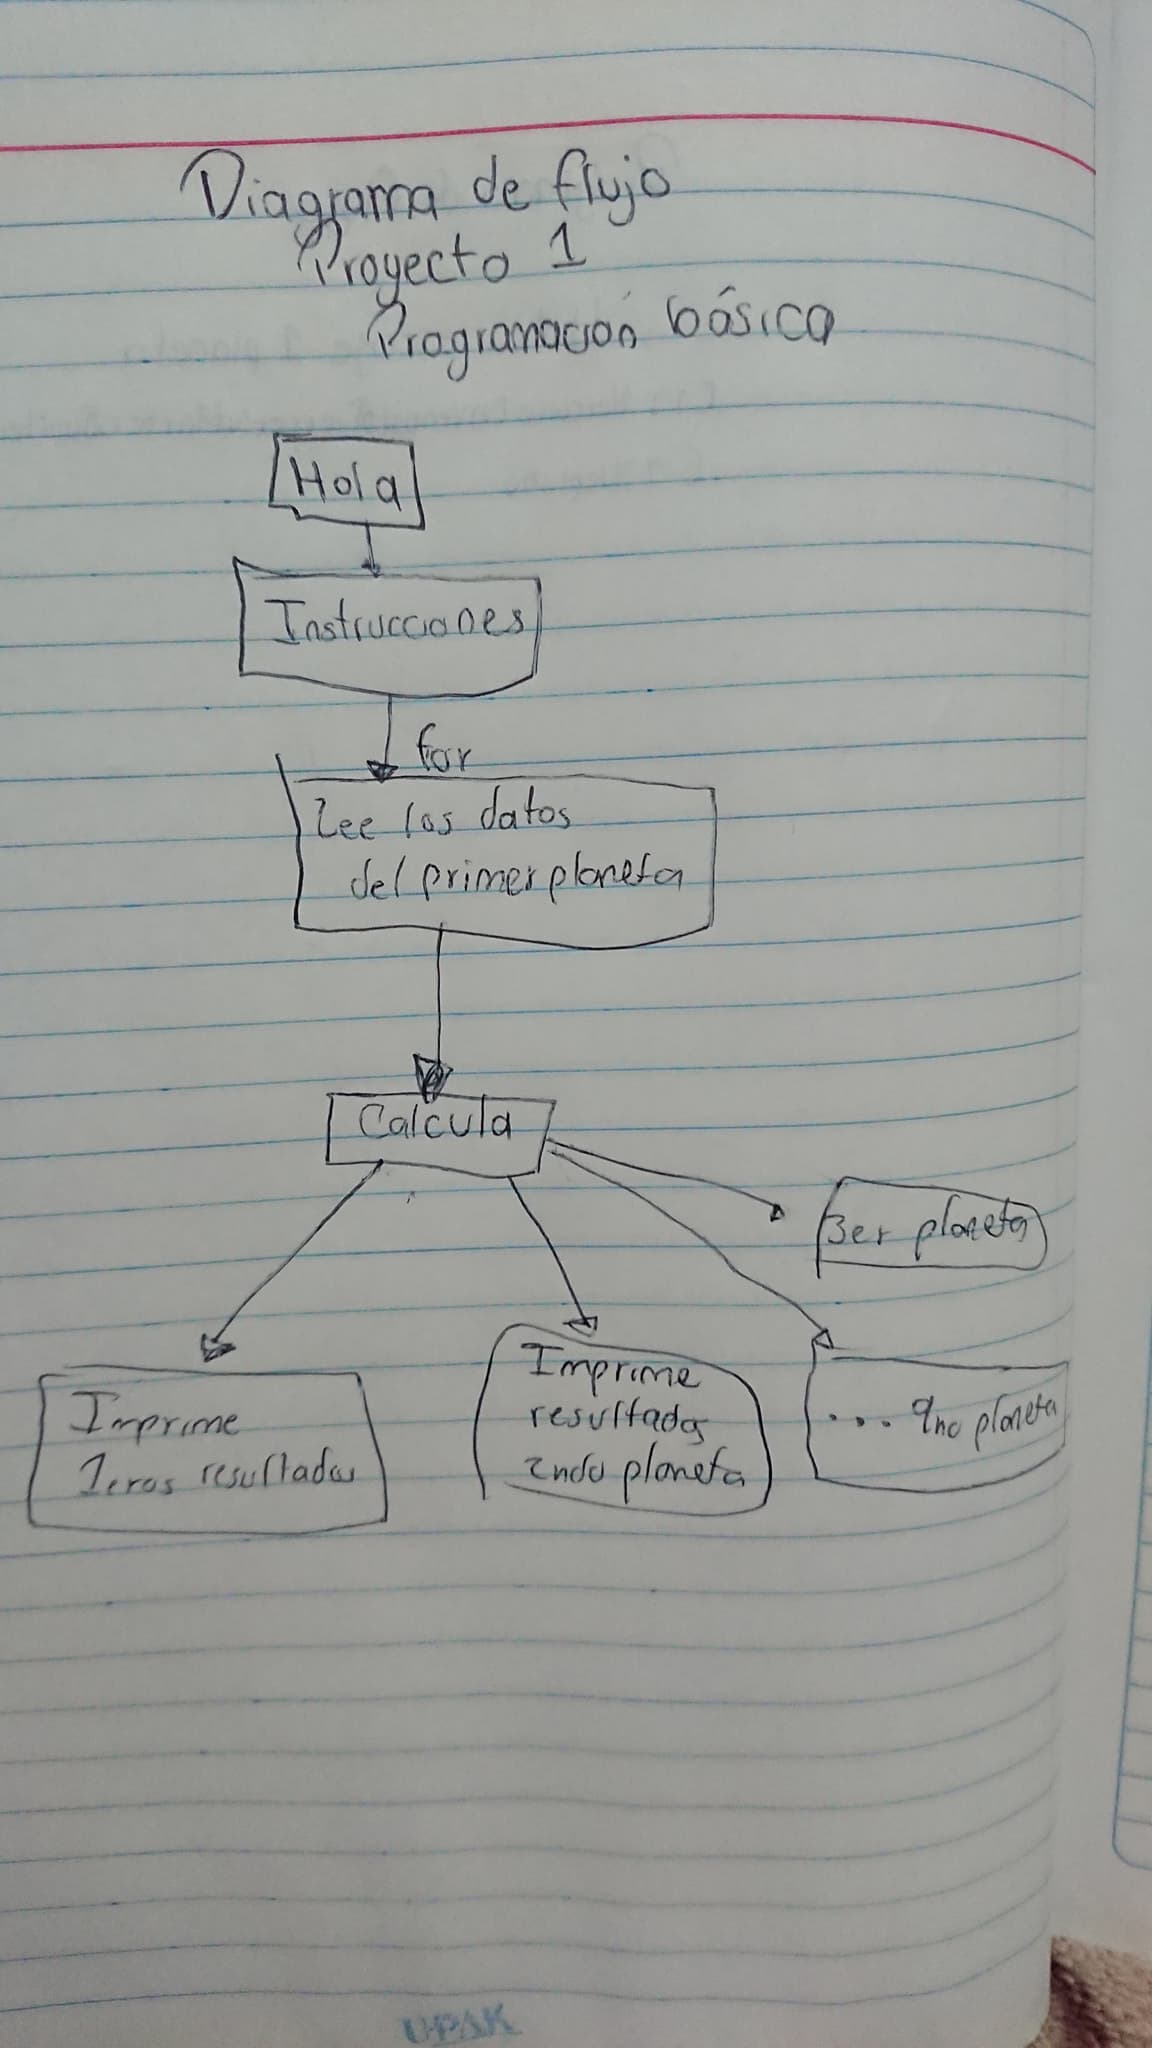 Diagrama de flujo
Proyecto 1
Programación básica
Hola
Instrucciones
for
Lee los datos
del primer planeta
Calcula
3er planeta
Imprime
1eros resultados
Imprime
resultados
2ndo planeta
... 9no planeta
UPAK